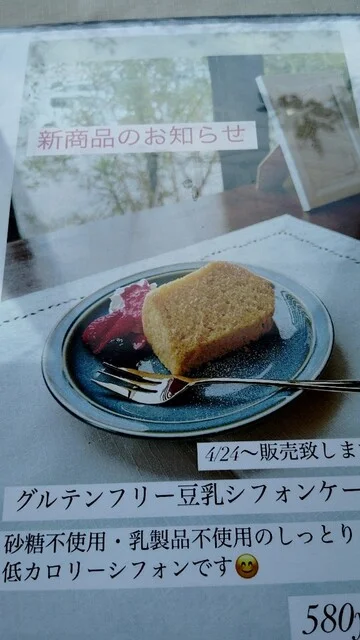 新商品のお知らせ
4/24～販売致しま
グルテンフリー豆乳シフォンケー
砂糖不使用・乳製品不使用のしっとり
低カロリーシフォンです😊
580